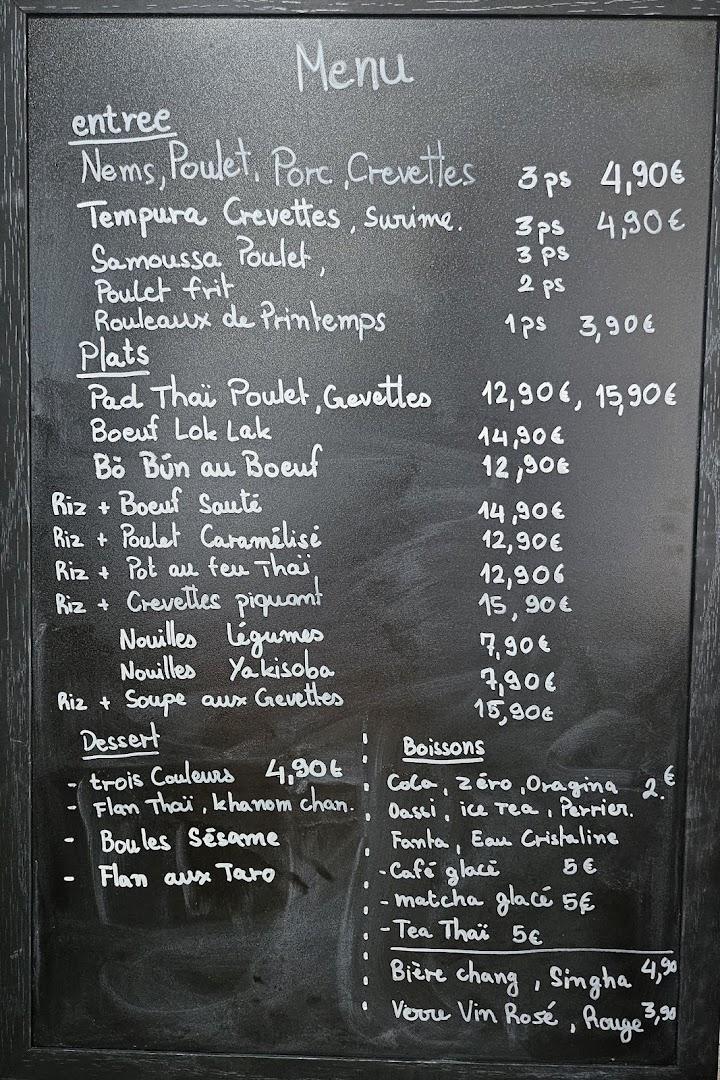 Menu
entree
Nems, Poulet, Porc, Crevettes 3 ps 4,90€
Tempura Crevettes, Surime. 3 ps 4,90€
Samoussa Poulet, 3 ps
Poulet frit 2 ps
Rouleaux de Printemps 1 ps 3,90€
Plats
Pad Thaï Poulet, Crevettes 12,90€, 15,90€
Boeuf Lok Lak 14,90€
Bò Bún au Boeuf 12,90€
Riz + Boeuf Sauté 14,90€
Riz + Poulet Caramélisé 12,90€
Riz + Pot au feu Thaï 12,90€
Riz + Crevettes piquant 15,90€
Nouilles légumes 7,90€
Nouilles Yakisoba 7,90€
Riz + Soupe aux Crevettes 15,90€
Dessert
- trois Couleurs 4,90€
- Flan Thaï, khanom chan.
- Boules Sésame
- Flan aux Taro
Boissons
Cola, zéro, Oragina 2.€
Oassi, ice Tea, Perrier.
Fanta, Eau Cristaline
- Café glacé 5€
- matcha glacé 5€
- Tea Thaï 5€
Bière chang, Singha 4,90
Verre Vin Rosé, Rouge 3,90